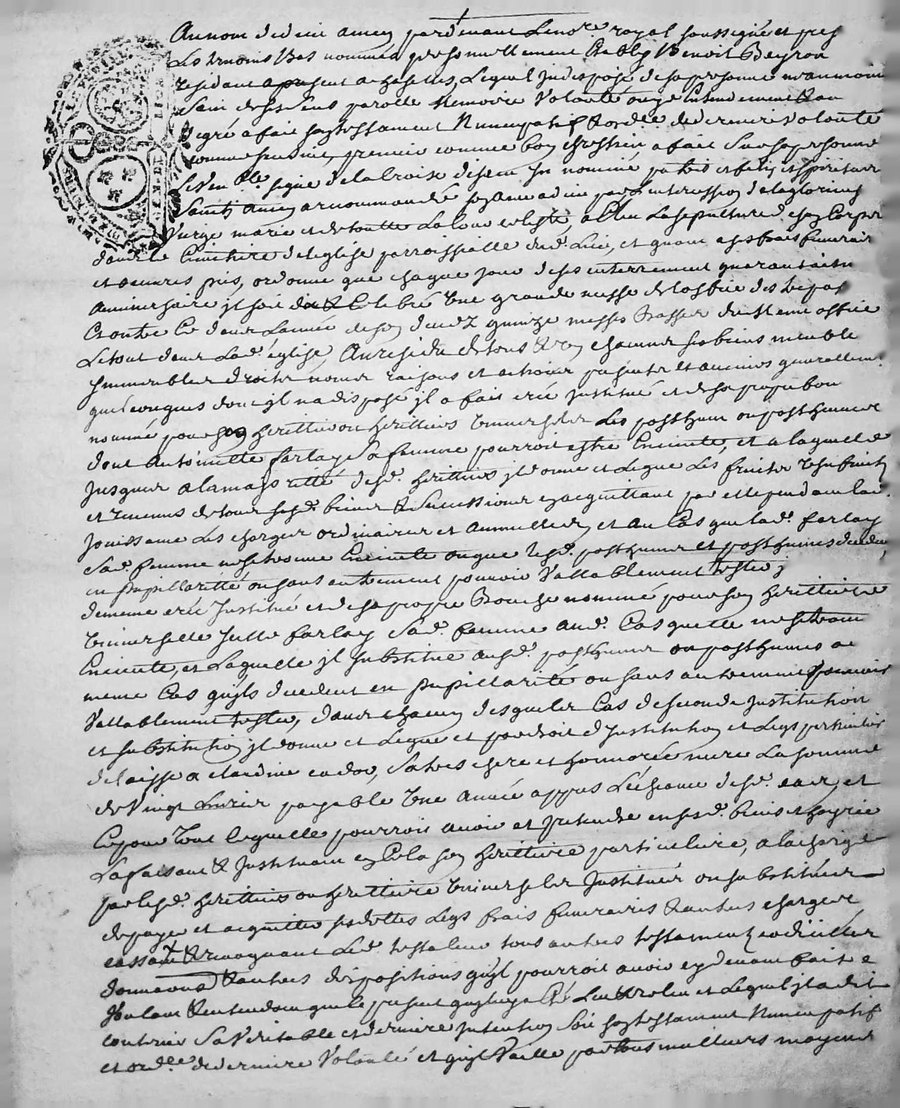 Au nom de dieu amen pardevant Le no.re royal soussigné et pns
Les tmoins bas nommés personnellement estably Benoit Beyron
residant a present a Lequel Indisposé de sa personne neanmoins
Sain de ses sens parolle Memoire Volonté ouye entendement & au
degré a fait son testament Nuncupatif & ord.re de derniere volonté
comme premier comme bon chrestien a fait Sur sa personne
Le signe de la Croix disant In nomine patris et filii et spiritus
Sancti amen a recommandé son ame a dieu par L'intercession de la glorieuse
Vierge marie et de toutte La Cour celeste, a Elu La sepulture de son Corps
dans le Cimitiere de L'eglise parroissialle dud. Lieu, et quant a ses frais funeraires
et oeuvres pies, ordonne que chaque jour de ses enterrement quarantain
anniversaire il soit dit & Celebré Une grande messe de L'office des trepas
Et outre Ce dans L'année de son deceds quinze messes Basses du meme office
Le tout dans Lad. eglise, Au residu de tous & un chacuns ses biens meubles
Immeubles droits noms raisons et actions presents et avenirs generallem.
quelconques dont il n'a disposé il a fait créé Institué et de sa propre bouche
nommé pour son heritier ou heritiers Universels Les posthume ou posthumes
dont Antoinette farlay Sa femme pourroit estre Enceinte, et a laquelle
Jusques a la majorité desd. heritiers il donne et Legue Les fruits Usufruits
et revenus de tous sesd. biens & Successions en acquittant par elle pendant lad.
Jouissance Les charges ordinaires et annuelles, et au Cas que lad. farlay
Sad. femme ne se trouve Enceinte ou que lesd. posthume et posthumes decedent
en pupillarité ou sans autrement pouvoir Vallablement tester,
de meme créé Institué et de sa propre Bouche nommé pour son heritiere
Universelle Jelle farlay Sad. femme aud. Cas qu'elle ne se trouve
Enceinte, et Laquelle il substitue auxd. posthume ou posthumes au
meme Cas qu'ils decedent en pupillarité ou sans autrement pouvoir
Vallablement tester, dans chacun desquels Cas de seconde Institution
et substitution il donne et Legue et par droit d'Institution et Legs particulier
delaisse a Claudine cadou, Sa tres chere et honnorée mere La somme
de Vingt Livres payable Une Année appres L'echeance desd. cas, et
Ce pour tout ce quelle pourroit avoir et pretendre en sesd. biens et hoyrie
La faisant & Instituant en Cela son heritiere particuliere, a la charge
par lesd. heritiers ou heritiere Universels Instituées ou substituées
de payer et acquitter ses dettes Legs frais funeraires & autres charges
cassant & revoquant Led. testateur tous autres testaments codicilles
donnaons & autres dispositions qu'il pourroit avoir cy devant fait
Voulant & entendant que le present qu'il a et Lequel il a dit
contenir Sa Veritable et derniere Intention Soit son testament Nuncupatif
et ord.re de derniere Volonté et qu'il Vaille par tous meilleurs moyens